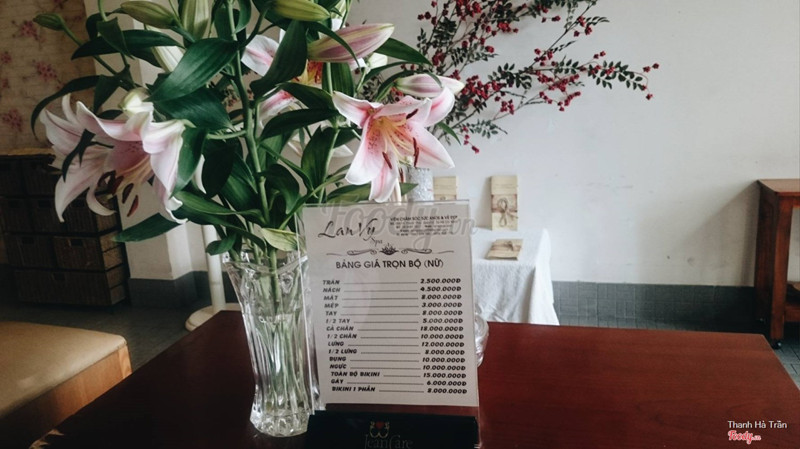 LanVy
Spa
VIỆN CHĂM SÓC SỨC KHỎE & VẺ ĐẸP
BẢNG GIÁ TRỌN BỘ (NỮ)
TRÁN 2.500.000Đ
NÁCH 4.500.000Đ
MẶT 8.000.000Đ
MÉP 3.000.000Đ
TAY 8.000.000Đ
1/2 TAY 5.000.000Đ
CẢ CHÂN 18.000.000Đ
1/2 CHÂN 10.000.000Đ
LƯNG 12.000.000Đ
1/2 LƯNG 8.000.000Đ
BỤNG 10.000.000Đ
NGỰC 10.000.000Đ
TOÀN BỘ BIKINI 15.000.000Đ
GÁY 6.000.000Đ
BIKINI 1 PHẦN 8.000.000Đ
Foody.vn
Thanh Hà Trần
Foody.vn